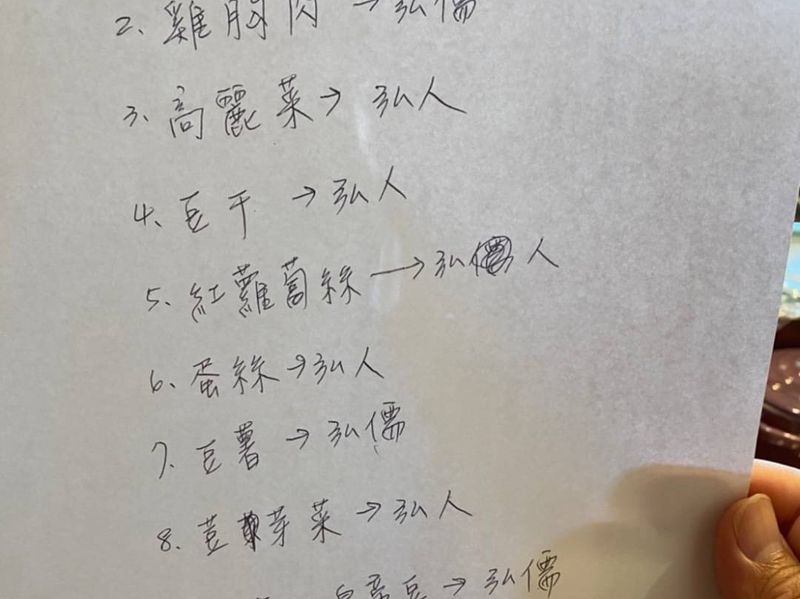 2. 雞胸肉 → 弘儒
3、高麗菜 → 弘人
4、豆干 → 弘人
5、紅蘿蔔絲 → 弘人
6、蛋絲 → 弘人
7、豆薯 → 弘儒
8、荳芽菜 → 弘人
豆 → 弘儒